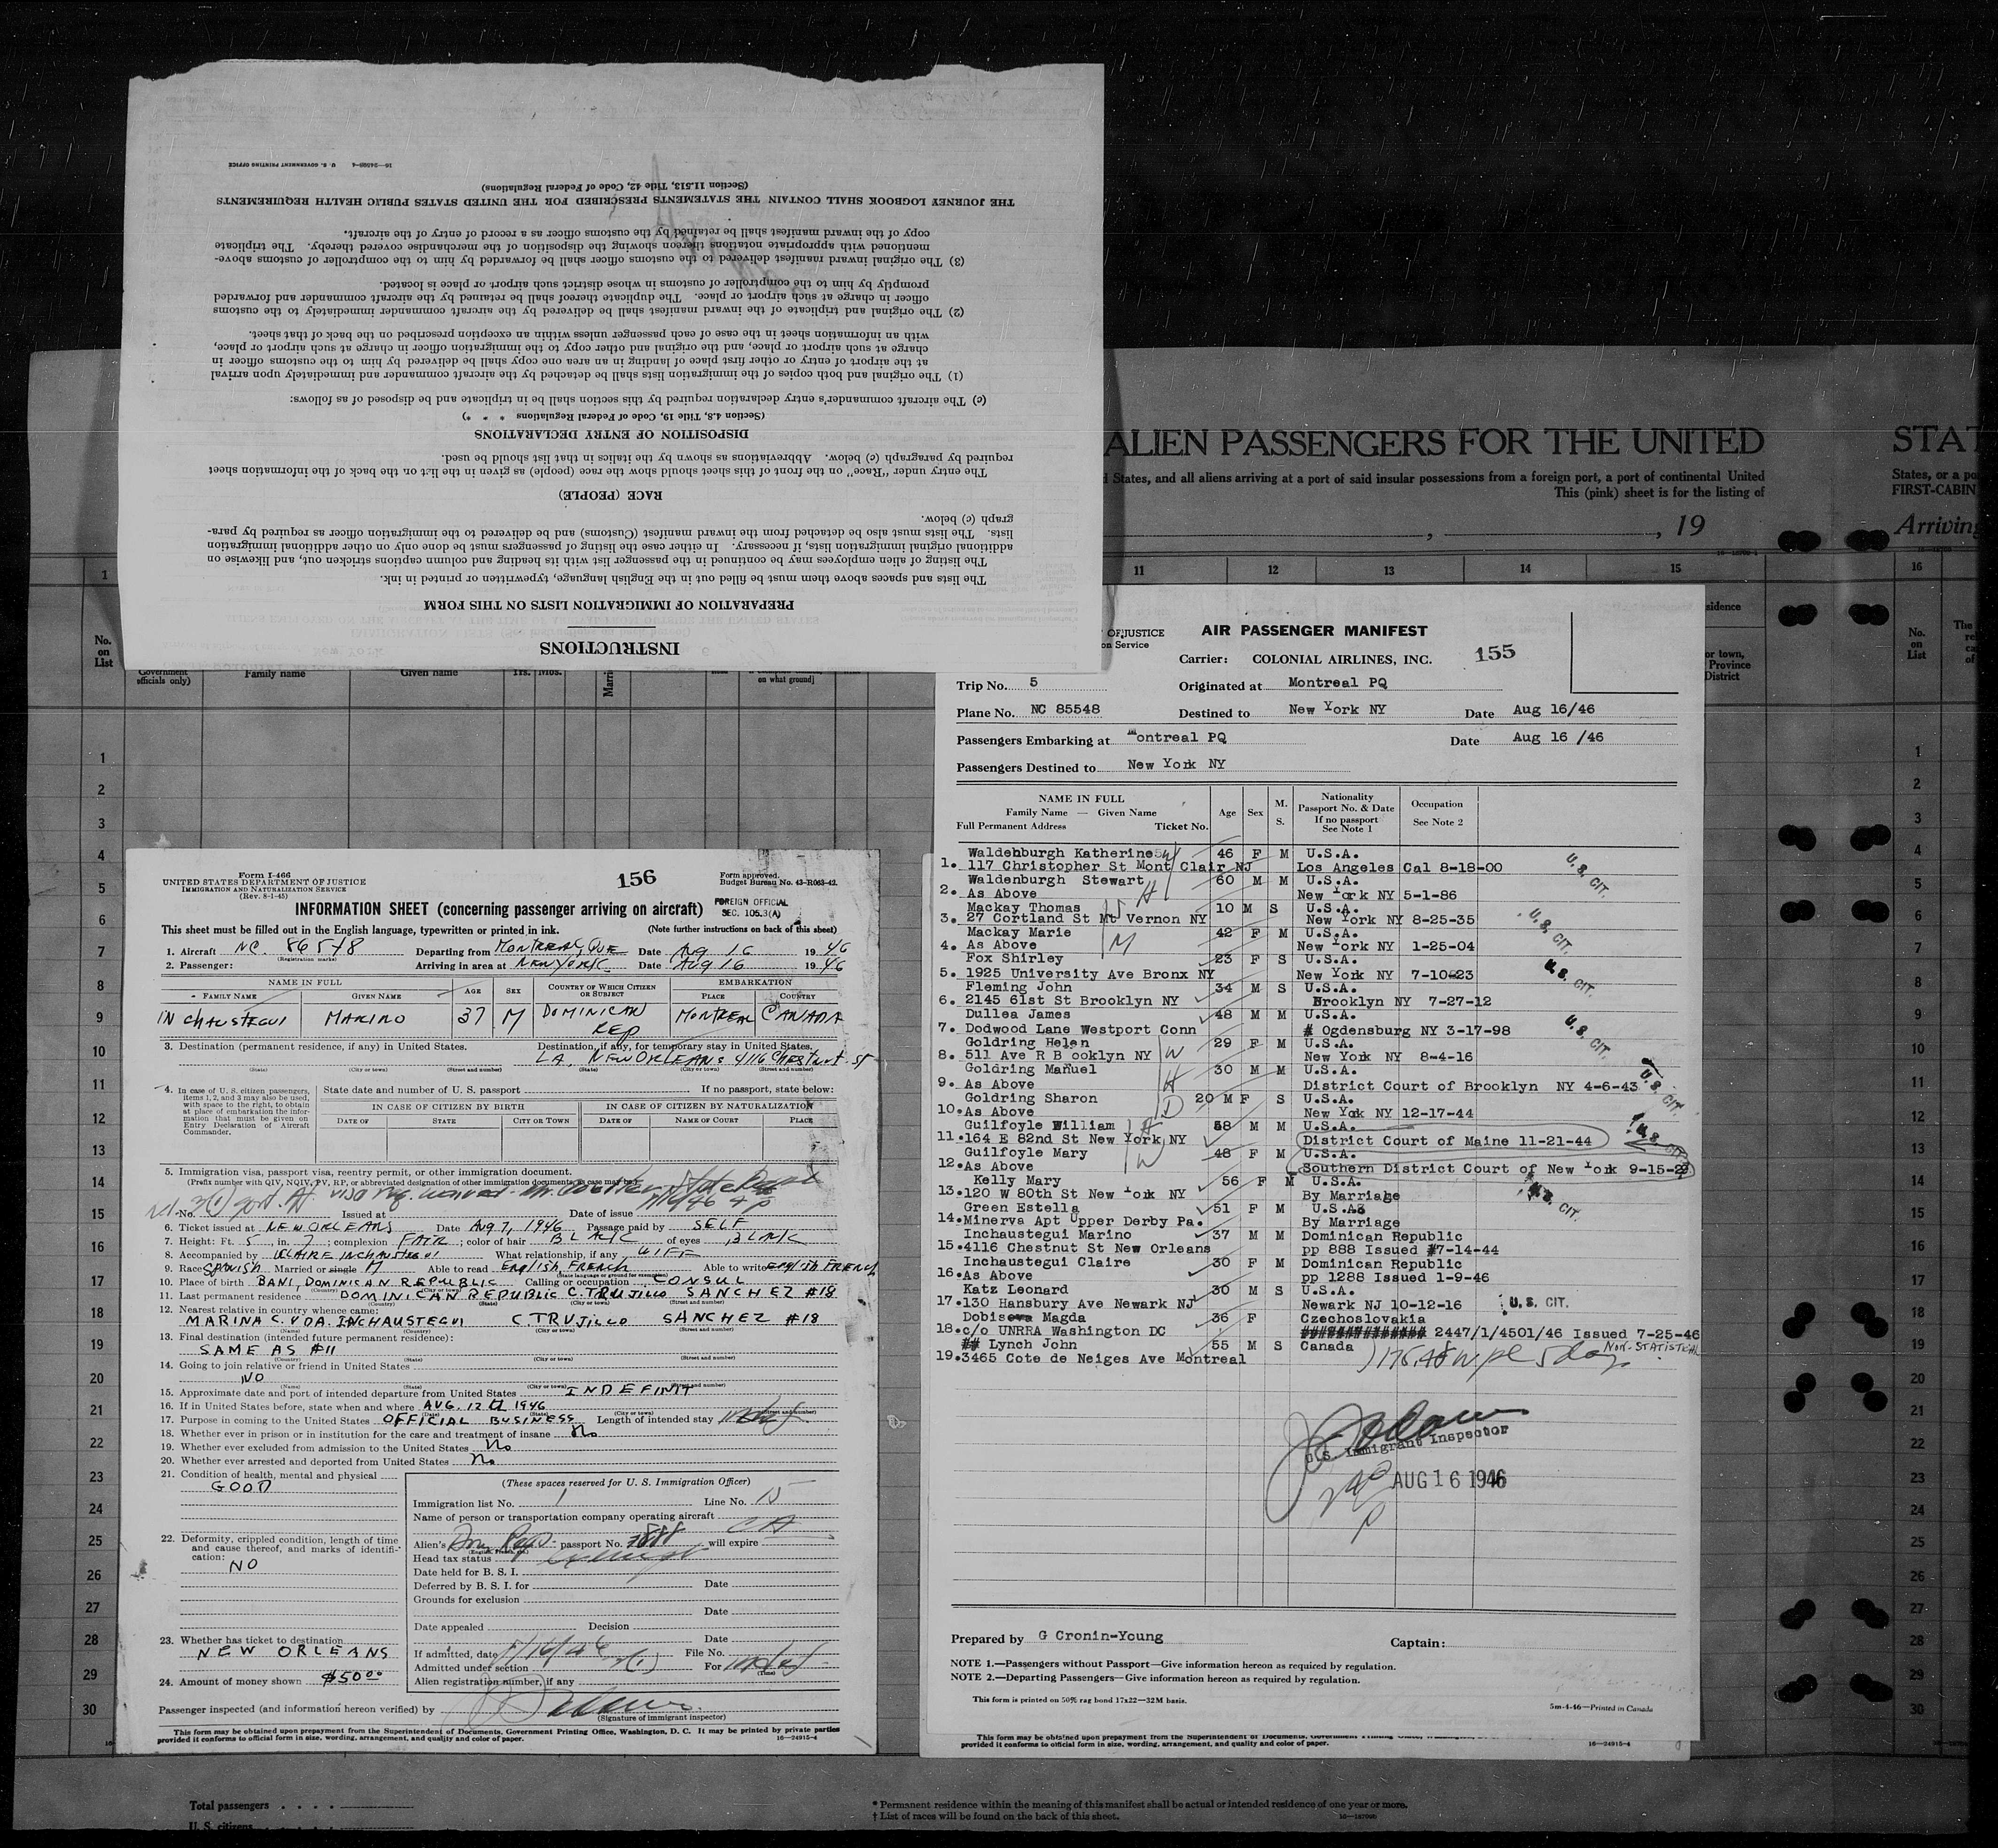 INSTRUCTIONS
PREPARATION OF IMMIGRATION LISTS ON THIS FORM
The lists and spaces above them must be filled out in the English language, typewritten or printed in ink.
The listing of alien employees may be continued in the passenger list with its heading and column captions stricken out, and likewise on
additional original immigration lists, if necessary. In either case the listing of passengers must be done only on other additional immigration
lists. The lists must also be detached from the inward manifest (Customs) and be delivered to the immigration officer as required by para-
graph (c) below.
RACE (PEOPLE)
The entry under "Race" on the front of this sheet should show the race (people) as given in the list on the back of the information sheet
required by paragraph (c) below. Abbreviations as shown by the italics in that list should be used.
DISPOSITION OF ENTRY DECLARATIONS
(Section 4.8, Title 19, Code of Federal Regulations * * *)
(c) The aircraft commander's entry declaration required by this section shall be in triplicate and be disposed of as follows:
(1) The original and both copies of the immigration lists shall be detached by the aircraft commander and immediately upon arrival
at the airport of entry or other first place of landing in an area one copy shall be delivered by him to the customs officer in
charge at such airport or place, and the original and other copy to the immigration officer in charge at such airport or place,
with an information sheet in the case of each passenger unless within an exception prescribed on the back of that sheet.
(2) The original and triplicate of the inward manifest shall be delivered by the aircraft commander immediately to the customs
officer in charge at such airport or place. The duplicate thereof shall be retained by the aircraft commander and forwarded
promptly by him to the comptroller of customs in whose district such airport or place is located.
(3) The original inward manifest delivered to the customs officer shall be forwarded by him to the comptroller of customs above-
mentioned with appropriate notations thereon showing the disposition of the merchandise covered thereby. The triplicate
copy of the inward manifest shall be retained by the customs officer as a record of entry of the aircraft.
THE JOURNEY LOGBOOK SHALL CONTAIN THE STATEMENTS PRESCRIBED FOR THE UNITED STATES PUBLIC HEALTH REQUIREMENTS
(Section 11.513, Title 42, Code of Federal Regulations)
U. S. GOVERNMENT PRINTING OFFICE
ALIEN PASSENGERS FOR THE UNITED STAT
States, and all aliens arriving at a port of said insular possessions from a foreign port, a port of continental United
This (pink) sheet is for the listing of
States, or a po
FIRST-CABIN
, 19
Arriving
1 11 12 13 14 15 16
No. on List
officials only)
Family name Given name Yrs. Mos.
on what ground]
Form I-466
UNITED STATES DEPARTMENT OF JUSTICE
IMMIGRATION AND NATURALIZATION SERVICE
(Rev. 8-1-45)
156
Form approved.
Budget Bureau No. 43-R063-42.
INFORMATION SHEET (concerning passenger arriving on aircraft)
FOREIGN OFFICIAL
SEC. 105.3(A)
This sheet must be filled out in the English language, typewritten or printed in ink. (Note further instructions on back of this sheet)
1. Aircraft NC. 86548 Departing from MONTREAL, QUE Date Aug 16 1946
(Registration marks)
2. Passenger: Arriving in area at NEW YORK Date AUG 16 1946
NAME IN FULL AGE SEX COUNTRY OF WHICH CITIZEN OR SUBJECT EMBARKATION
FAMILY NAME GIVEN NAME PLACE COUNTRY
INCHAUSTEGUI MARINO 37 M DOMINICAN REP MONTREAL CANADA
3. Destination (permanent residence, if any) in United States. Destination, if any, for temporary stay in United States.
LA. NEW ORLEANS 4116 Chestnut St
(State) (City or town) (Street and number) (State) (City or town) (Street and number)
4. In case of U. S. citizen passengers, items 1, 2, and 3 may also be used, with space to the right, to obtain at place of embarkation the information that must be given on Entry Declaration of Aircraft Commander.
State date and number of U. S. passport If no passport, state below:
IN CASE OF CITIZEN BY BIRTH IN CASE OF CITIZEN BY NATURALIZATION
DATE OF STATE CITY OR TOWN DATE OF NAME OF COURT PLACE
5. Immigration visa, passport visa, reentry permit, or other immigration document.
(Prefix number with QIV, NQIV, PV, RP, or abbreviated designation of other immigration documents, as case may be)
No. Issued at Date of issue
6. Ticket issued at NEW ORLEANS Date Aug 7, 1946 Passage paid by SELF
7. Height: Ft. 5, in. 7; complexion FAIR; color of hair BLACK of eyes BLACK
8. Accompanied by CLAIRE INCHAUSTEGUI What relationship, if any WIFE
9. Race SPANISH Married or single M Able to read ENGLISH, FRENCH Able to write ENGLISH FRENCH
10. Place of birth BANI, DOMINICAN REPUBLIC Calling or occupation CONSUL
11. Last permanent residence DOMINICAN REPUBLIC C. TRUJILLO SANCHEZ #18
12. Nearest relative in country whence came:
MARINA C. VDA. INCHAUSTEGUI C. TRUJILLO SANCHEZ #18
13. Final destination (intended future permanent residence):
SAME AS #11
14. Going to join relative or friend in United States
NO
15. Approximate date and port of intended departure from United States INDEFINIT
16. If in United States before, state when and where AUG. 12 1946
17. Purpose in coming to the United States OFFICIAL BUSINESS Length of intended stay
18. Whether ever in prison or in institution for the care and treatment of insane No
19. Whether ever excluded from admission to the United States No
20. Whether ever arrested and deported from United States No
21. Condition of health, mental and physical
GOOD
22. Deformity, crippled condition, length of time and cause thereof, and marks of identification:
NO
23. Whether has ticket to destination
NEW ORLEANS
24. Amount of money shown $50.00
(These spaces reserved for U. S. Immigration Officer)
Immigration list No. 1 Line No. 15
Name of person or transportation company operating aircraft CA
Alien's Dom Rep passport No. will expire
Head tax status exempt
Date held for B. S. I.
Deferred by B. S. I. for Date
Grounds for exclusion
Date
Date appealed Decision
Date
If admitted, date 8/16/46 File No.
Admitted under section 3(1) For
(Time)
Alien registration number, if any
Passenger inspected (and information hereon verified) by
(Signature of immigrant inspector)
This form may be obtained upon prepayment from the Superintendent of Documents, Government Printing Office, Washington, D. C. It may be printed by private parties
provided it conforms to official form in size, wording, arrangement, and quality and color of paper. 16—24915-4
OF JUSTICE
on Service
AIR PASSENGER MANIFEST
Carrier: COLONIAL AIRLINES, INC. 155
Trip No. 5 Originated at Montreal PQ
Plane No. NC 85548 Destined to New York NY Date Aug 16/46
Passengers Embarking at Montreal PQ Date Aug 16 /46
Passengers Destined to New York NY
NAME IN FULL
Family Name — Given Name
Full Permanent Address Ticket No.
Age Sex M. S.
Nationality
Passport No. & Date
If no passport
See Note 1
Occupation
See Note 2
Waldenburgh Katherine 46 F M U.S.A.
1. 117 Christopher St Mont Clair NJ Los Angeles Cal 8-18-00
Waldenburgh Stewart 60 M M U.S.A.
2. As Above New York NY 5-1-86
Mackay Thomas 10 M S U.S.A.
3. 27 Cortland St Mt Vernon NY New York NY 8-25-35
Mackay Marie 42 F M U.S.A.
4. As Above New York NY 1-25-04
Fox Shirley 23 F S U.S.A.
5. 1925 University Ave Bronx NY New York NY 7-10-23
Fleming John 34 M S U.S.A.
6. 2145 61st St Brooklyn NY Brooklyn NY 7-27-12
Dullea James 48 M M U.S.A.
7. Dodwood Lane Westport Conn # Ogdensburg NY 3-17-98
Goldring Helen 29 F M U.S.A.
8. 511 Ave R B ooklyn NY New York NY 8-4-16
Goldring Manuel 30 M M U.S.A.
9. As Above District Court of Brooklyn NY 4-6-43
Goldring Sharon 20 M F S U.S.A.
10. As Above New York NY 12-17-44
Guilfoyle William 58 M M U.S.A.
11. 164 E 82nd St New York NY District Court of Maine 11-21-44
Guilfoyle Mary 48 F M U.S.A.
12. As Above Southern District Court of New York 9-15-22
Kelly Mary 56 F M U.S.A.
13. 120 W 80th St New York NY By Marriage
Green Estella 51 F M U.S.A.
14. Minerva Apt Upper Derby Pa. By Marriage
Inchaustegui Marino 37 M M Dominican Republic
15. 4116 Chestnut St New Orleans pp 888 Issued #7-14-44
Inchaustegui Claire 30 F M Dominican Republic
16. As Above pp 1288 Issued 1-9-46
Katz Leonard 30 M S U.S.A.
17. 130 Hansbury Ave Newark NJ Newark NJ 10-12-16 U.S. CIT.
Dobiseva Magda 36 F Czechoslovakia
18. c/o UNRRA Washington DC 2447/1/4501/46 Issued 7-25-46
## Lynch John 55 M S Canada NON-STATISTICAL
19. 3465 Cote de Neiges Ave Montreal
U.S. CIT.
U.S. CIT.
U.S. CIT.
U.S. CIT.
U.S. CIT.
U.S. CIT.
U.S. CIT.
U.S. Immigrant Inspector
AUG 16 1946
Prepared by G Cronin-Young Captain:
NOTE 1.—Passengers without Passport—Give information hereon as required by regulation.
NOTE 2.—Departing Passengers—Give information hereon as required by regulation.
This form is printed on 50% rag bond 17x22—32M basis. 5m-4-46—Printed in Canada
This form may be obtained upon prepayment from the Superintendent of Documents, Government Printing Office,
provided it conforms to official form in size, wording, arrangement, and quality and color of paper. 16—24915-4
Total passengers
U. S. citizens
* Permanent residence within the meaning of this manifest shall be actual or intended residence of one year or more.
† List of races will be found on the back of this sheet.